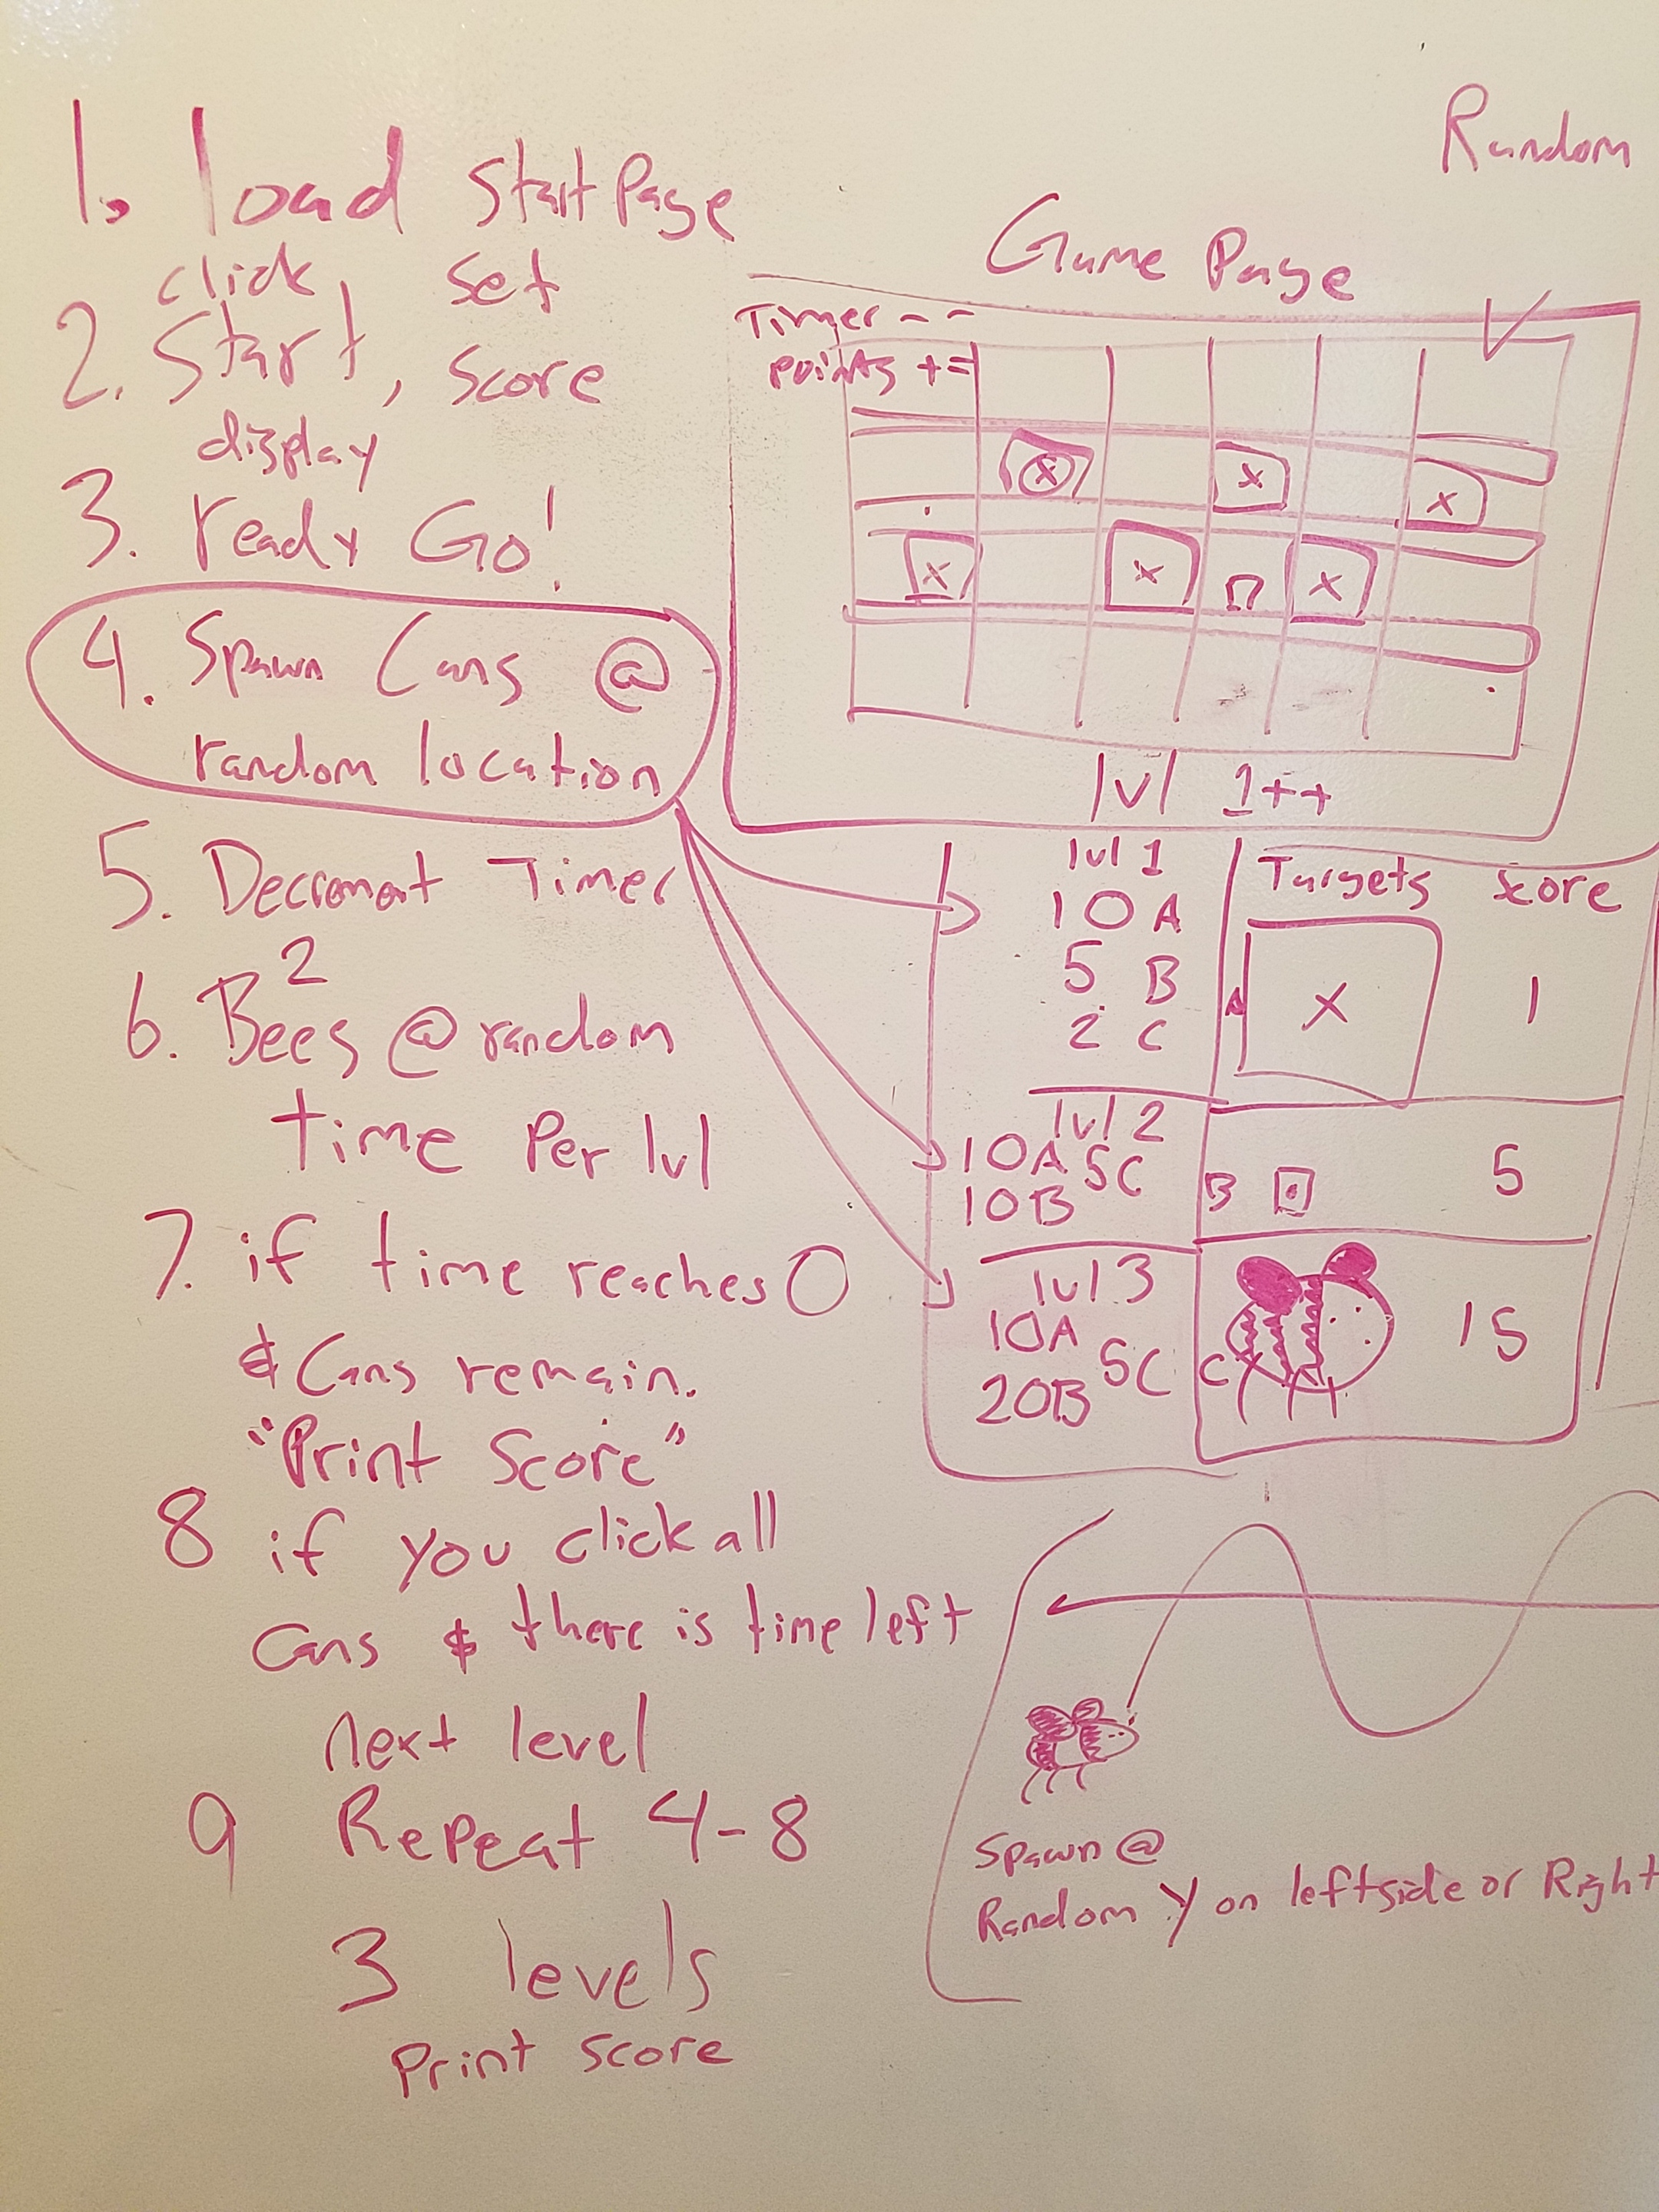 1. load start Page
click, set
2. Start, score
display
3. ready Go!
4. Spawn Cans @
random location
5. Decrement Timer
6. Bees 2 @ random
time Per lvl
7. if time reaches 0
& Cans remain.
"Print Score"
8 if you click all
Cans & there is time left
next level
9 Repeat 4-8
3 levels
Print score
Random
Game Page
Timer --
points +=
x x x
x x x
lvl 1++
lvl 1
10 A
5 B
2 C
lvl 2
10A 5C
10B
lvl 3
10A
20B 5C
Targets Score
A x 1
B 5
C 15
Spawn @
Random Y on leftside or Right